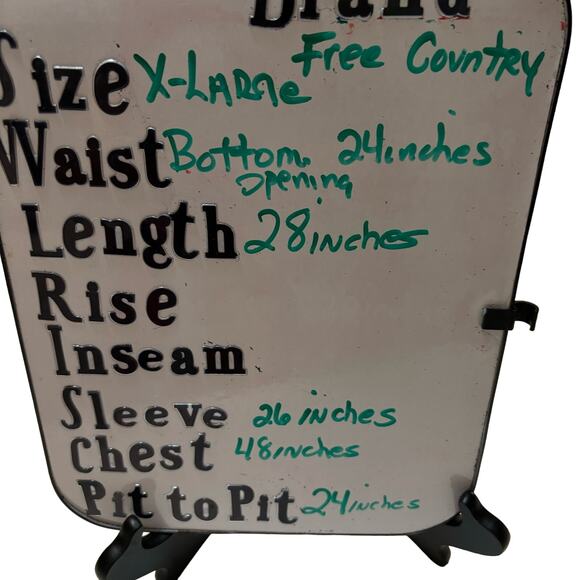 Brand
Free Country
Size X-LARGe
Waist Bottom. 24inches
opening
Length 28inches
Rise
Inseam
Sleeve 26 inches
Chest 48inches
Pit to Pit 24inches